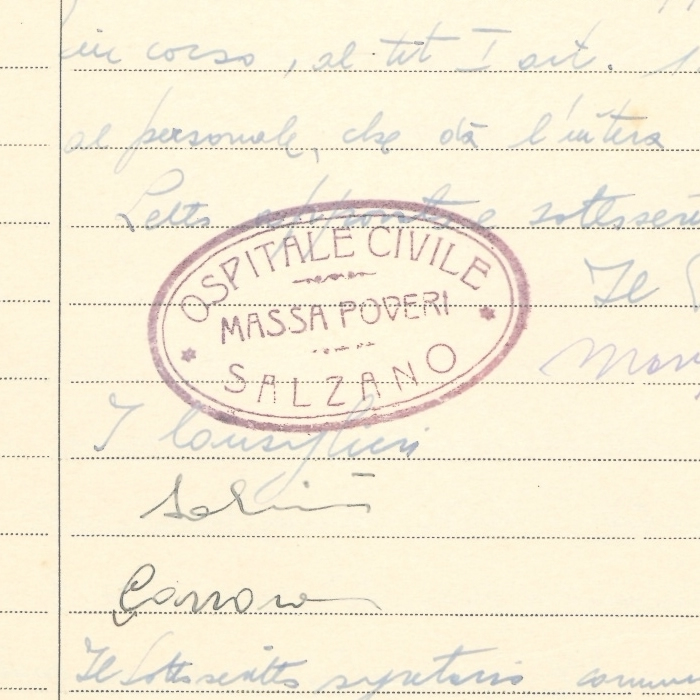 in corso, al tit I art.
al personale, che dà l'intera
Letto approvato e sottoscritto
OSPITALE CIVILE
MASSA POVERI
SALZANO
Il
I Consiglieri
Il sottoscritto segretario